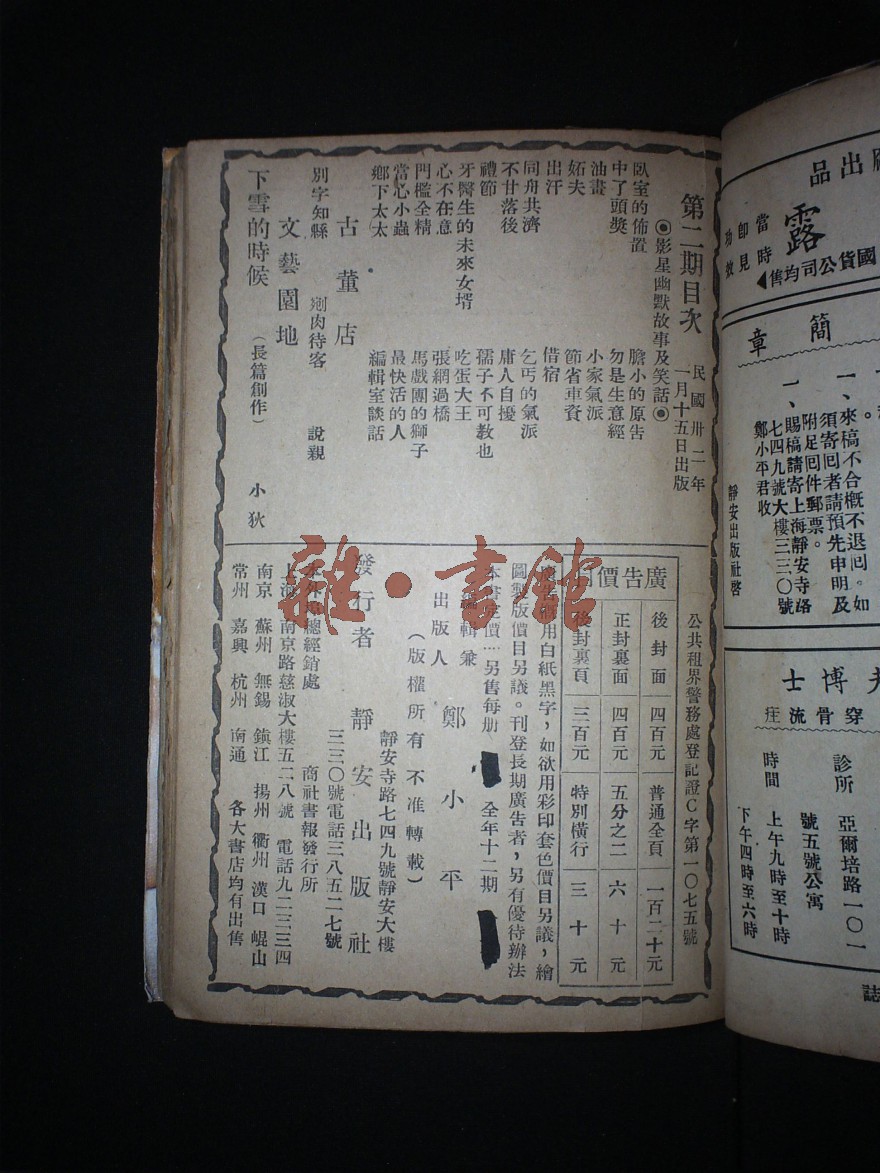 出品
露
當時
即見
功效
國貨公司均售
簡章
一、來稿不合概不退回。如
須寄回者請預先申明及
附足回件郵票。
一、賜稿請寄上海靜安寺路
七四九號大樓三三〇號
鄭小平君收
靜安出版社啓
夫博士
穿骨流注
診所 亞爾培路一〇一
號五號公寓
時間 上午九時至十時
下午四時至六時
誌
第二期目次
民國卅二年
一月十五日出版
◉影星幽默故事及笑話◉
臥室的佈置 膽小的原告
中了頭獎 勿是生意經
油畫 小家氣派
妬夫 節省車資
出汗 借宿
同舟共濟 乞丐的氣派
不甘落後 庸人自擾
禮節 孺子不可教也
牙醫生的未來女壻 吃蛋大王
心不在意 張網過橋
門檻全精 馬戲團的獅子
當心小蟲 最快活的人
鄉下太太 編輯室談話
古董店
別字知縣 剜肉待客 說親
文藝園地
下雪的時候 (長篇創作) 小狄
公共租界警務處登記證C字第一〇七五號
廣告價目
後封面 四百元 普通全頁 一百二十元
正封裏面 四百元 五分之二 六十元
後封裏頁 三百元 特別橫行 三十元
用白紙黑字,如欲用彩印套色價目另議,繪
圖製版價目另議。刊登長期廣告者,另有優待辦法
本書定價…另售每册 全年十二期
編輯兼
出版人 鄭小平
(版權所有 不准轉載)
靜安寺路七四九號靜安大樓
發行者 靜安出版社
三三〇號電話三八五二七號
本外埠總經銷處 商社書報發行所
上海南京路慈淑大樓五二八號 電話九二三三四
南京 蘇州 無錫 鎮江 揚州 衢州 漢口 崐山
常州 嘉興 杭州 南通 各大書店均有出售
雜·書館